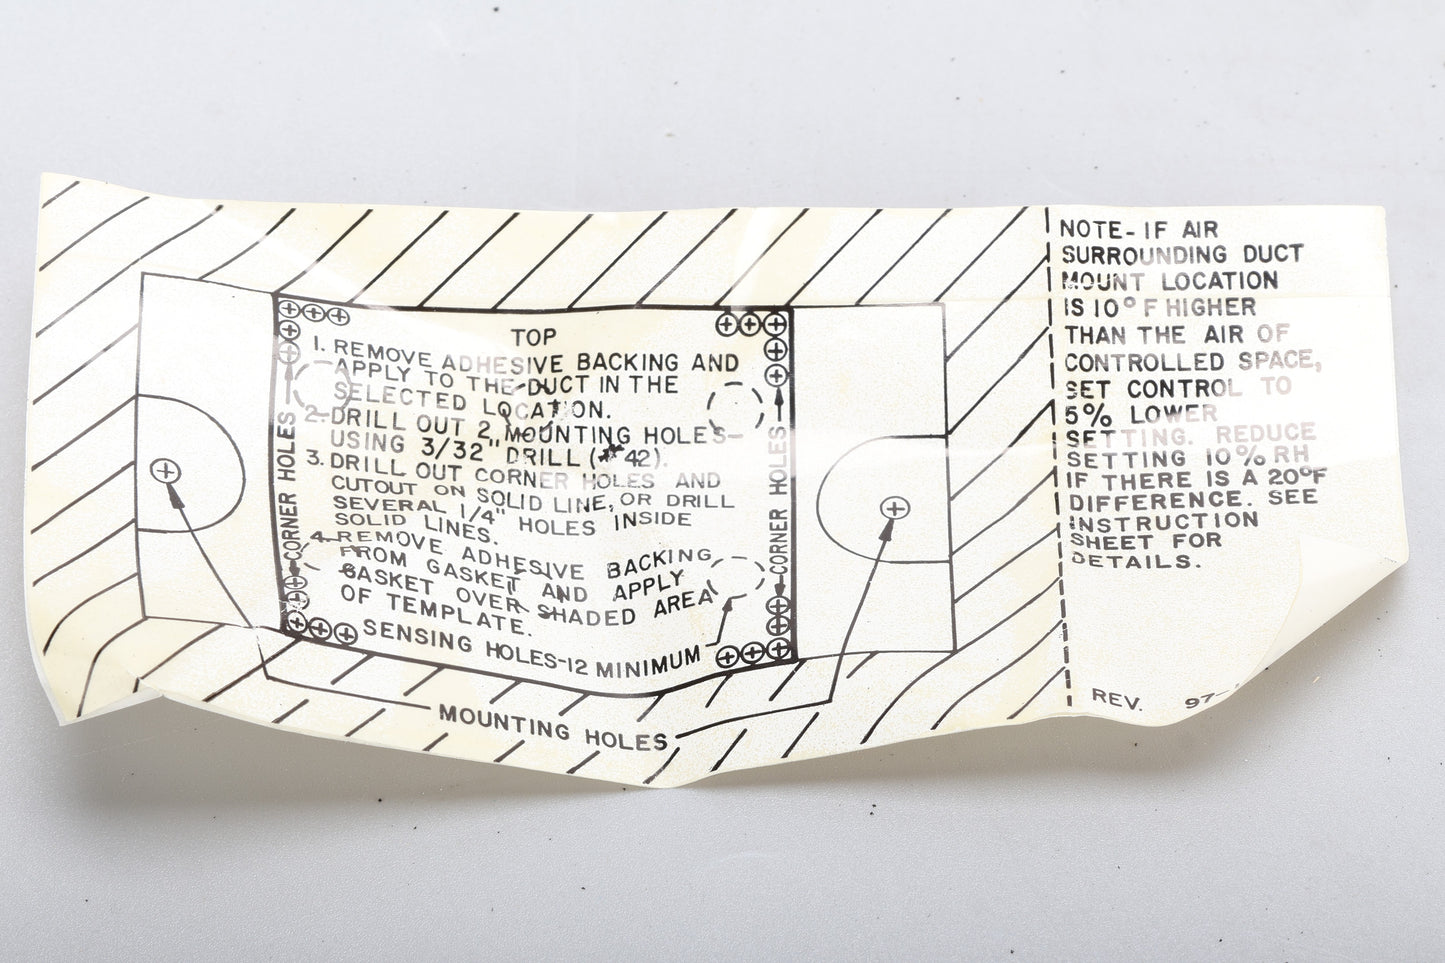 TOP
1. REMOVE ADHESIVE BACKING AND
APPLY TO THE DUCT IN THE
SELECTED LOCATION.
2. DRILL OUT 2 MOUNTING HOLES
USING 3/32" DRILL (#42).
3. DRILL OUT CORNER HOLES AND
CUTOUT ON SOLID LINE, OR DRILL
SEVERAL 1/4" HOLES INSIDE
SOLID LINES.
4. REMOVE ADHESIVE BACKING
FROM GASKET AND APPLY
GASKET OVER SHADED AREA
OF TEMPLATE.
SENSING HOLES-12 MINIMUM
CORNER HOLES
CORNER HOLES
MOUNTING HOLES
NOTE-IF AIR
SURROUNDING DUCT
MOUNT LOCATION
IS 10°F HIGHER
THAN THE AIR OF
CONTROLLED SPACE,
SET CONTROL TO
5% LOWER
SETTING. REDUCE
SETTING 10% RH
IF THERE IS A 20°F
DIFFERENCE. SEE
INSTRUCTION
SHEET FOR
DETAILS.
REV. 97-